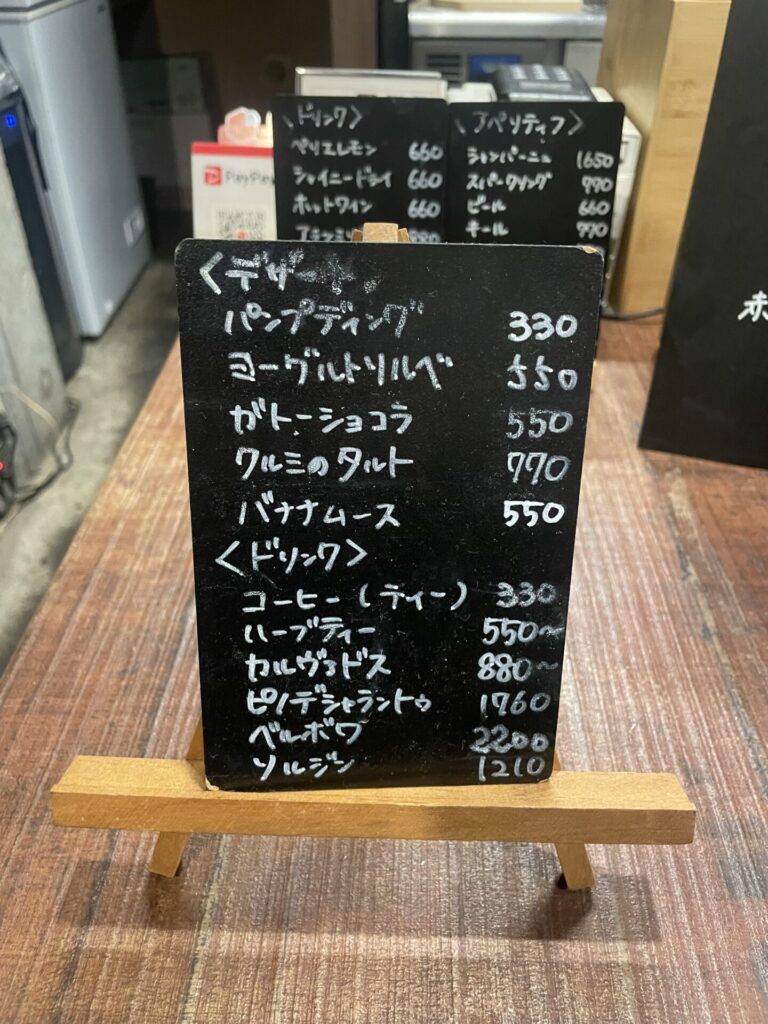 <ドリンク>
ペリエレモン 660
シャイニードライ 660
ホットワイン 660
<アペリティフ>
シャンパーニュ 1650
スパークリング 770
ビール 660
キール 770
PayPay
<デザート>
パンプディング 330
ヨーグルトソルベ 550
ガトーショコラ 550
クルミのタルト 770
バナナムース 550
<ドリンク>
コーヒー(ティー) 330
ハーブティー 550~
カルヴァドス 880~
ピノデシャラントゥ 1760
ベルボワ 2200
ソルジン 1210
赤